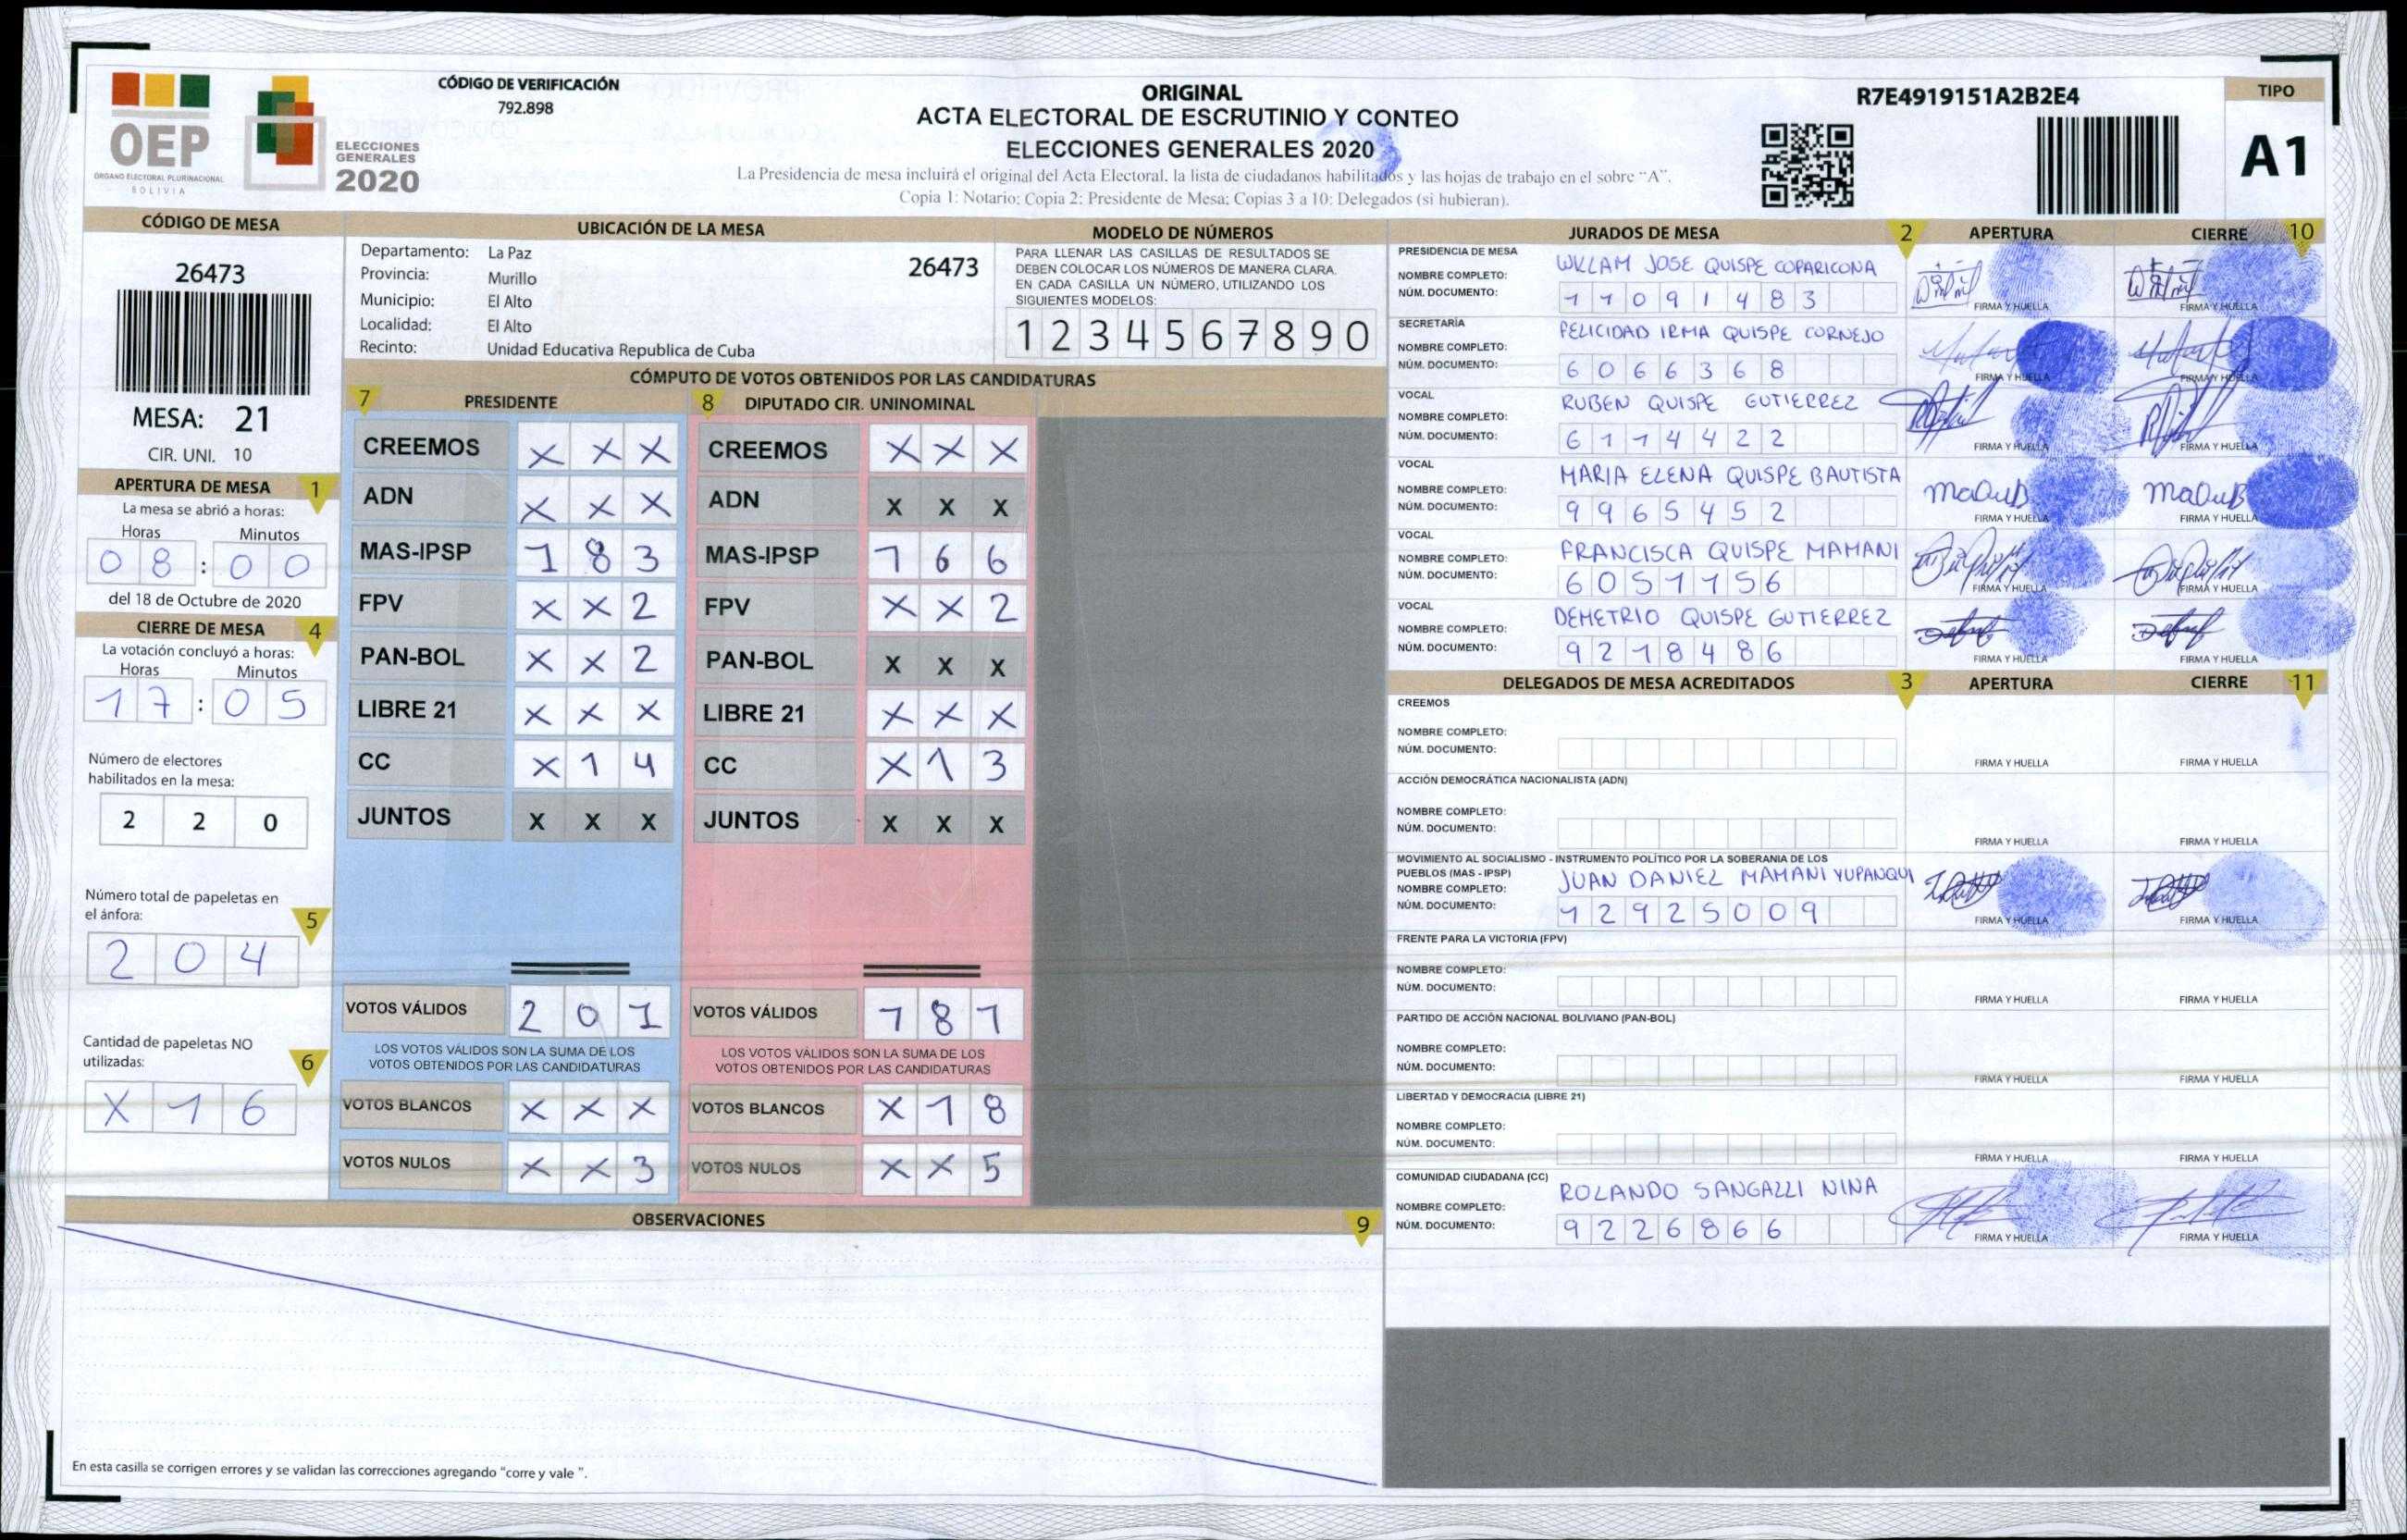 CÓDIGO DE VERIFICACIÓN
792.898
OEP
ÓRGANO ELECTORAL PLURINACIONAL
BOLIVIA
ELECCIONES
GENERALES
2020
ORIGINAL
ACTA ELECTORAL DE ESCRUTINIO Y CONTEO
ELECCIONES GENERALES 2020
La Presidencia de mesa incluirá el original del Acta Electoral, la lista de ciudadanos habilitados y las hojas de trabajo en el sobre "A".
Copia 1: Notario; Copia 2: Presidente de Mesa; Copias 3 a 10: Delegados (si hubieran).
R7E4919151A2B2E4
TIPO
A1
CÓDIGO DE MESA
26473
MESA: 21
CIR. UNI. 10
APERTURA DE MESA 1
La mesa se abrió a horas:
Horas Minutos
08:00
del 18 de Octubre de 2020
CIERRE DE MESA 4
La votación concluyó a horas:
Horas Minutos
17:05
Número de electores
habilitados en la mesa:
2 2 0
Número total de papeletas en
el ánfora: 5
2 0 4
Cantidad de papeletas NO
utilizadas: 6
X 1 6
UBICACIÓN DE LA MESA
Departamento: La Paz
Provincia: Murillo
Municipio: El Alto
Localidad: El Alto
Recinto: Unidad Educativa Republica de Cuba
26473
MODELO DE NÚMEROS
PARA LLENAR LAS CASILLAS DE RESULTADOS SE
DEBEN COLOCAR LOS NÚMEROS DE MANERA CLARA.
EN CADA CASILLA UN NÚMERO, UTILIZANDO LOS
SIGUIENTES MODELOS:
1 2 3 4 5 6 7 8 9 0
CÓMPUTO DE VOTOS OBTENIDOS POR LAS CANDIDATURAS
7 PRESIDENTE
CREEMOS X X X
ADN X X X
MAS-IPSP 1 8 3
FPV X X 2
PAN-BOL X X 2
LIBRE 21 X X X
CC X 1 4
JUNTOS X X X
VOTOS VÁLIDOS 2 0 1
LOS VOTOS VÁLIDOS SON LA SUMA DE LOS
VOTOS OBTENIDOS POR LAS CANDIDATURAS
VOTOS BLANCOS X X X
VOTOS NULOS X X 3
8 DIPUTADO CIR. UNINOMINAL
CREEMOS X X X
ADN X X X
MAS-IPSP 1 6 6
FPV X X 2
PAN-BOL X X X
LIBRE 21 X X X
CC X 1 3
JUNTOS X X X
VOTOS VÁLIDOS 1 8 1
LOS VOTOS VÁLIDOS SON LA SUMA DE LOS
VOTOS OBTENIDOS POR LAS CANDIDATURAS
VOTOS BLANCOS X 1 8
VOTOS NULOS X X 5
OBSERVACIONES 9
En esta casilla se corrigen errores y se validan las correcciones agregando "corre y vale ".
JURADOS DE MESA 2 APERTURA CIERRE 10
PRESIDENCIA DE MESA
NOMBRE COMPLETO: WILLAM JOSE QUISPE COPARICONA
NÚM. DOCUMENTO: 11091483
FIRMA Y HUELLA FIRMA Y HUELLA
SECRETARÍA
NOMBRE COMPLETO: FELICIDAD IRMA QUISPE CORNEJO
NÚM. DOCUMENTO: 6066368
FIRMA Y HUELLA FIRMA Y HUELLA
VOCAL
NOMBRE COMPLETO: RUBEN QUISPE GUTIERREZ
NÚM. DOCUMENTO: 6114422
FIRMA Y HUELLA FIRMA Y HUELLA
VOCAL
NOMBRE COMPLETO: MARIA ELENA QUISPE BAUTISTA
NÚM. DOCUMENTO: 9965452
FIRMA Y HUELLA FIRMA Y HUELLA
VOCAL
NOMBRE COMPLETO: FRANCISCA QUISPE MAMANI
NÚM. DOCUMENTO: 6051156
FIRMA Y HUELLA FIRMA Y HUELLA
VOCAL
NOMBRE COMPLETO: DEMETRIO QUISPE GUTIERREZ
NÚM. DOCUMENTO: 9218486
FIRMA Y HUELLA FIRMA Y HUELLA
DELEGADOS DE MESA ACREDITADOS 3 APERTURA CIERRE 11
CREEMOS
NOMBRE COMPLETO:
NÚM. DOCUMENTO:
FIRMA Y HUELLA FIRMA Y HUELLA
ACCIÓN DEMOCRÁTICA NACIONALISTA (ADN)
NOMBRE COMPLETO:
NÚM. DOCUMENTO:
FIRMA Y HUELLA FIRMA Y HUELLA
MOVIMIENTO AL SOCIALISMO - INSTRUMENTO POLÍTICO POR LA SOBERANIA DE LOS
PUEBLOS (MAS - IPSP)
NOMBRE COMPLETO: JUAN DANIEL MAMANI YUPANQUI
NÚM. DOCUMENTO: 12925009
FIRMA Y HUELLA FIRMA Y HUELLA
FRENTE PARA LA VICTORIA (FPV)
NOMBRE COMPLETO:
NÚM. DOCUMENTO:
FIRMA Y HUELLA FIRMA Y HUELLA
PARTIDO DE ACCIÓN NACIONAL BOLIVIANO (PAN-BOL)
NOMBRE COMPLETO:
NÚM. DOCUMENTO:
FIRMA Y HUELLA FIRMA Y HUELLA
LIBERTAD Y DEMOCRACIA (LIBRE 21)
NOMBRE COMPLETO:
NÚM. DOCUMENTO:
FIRMA Y HUELLA FIRMA Y HUELLA
COMUNIDAD CIUDADANA (CC)
NOMBRE COMPLETO: ROLANDO SANGALLI NINA
NÚM. DOCUMENTO: 9226866
FIRMA Y HUELLA FIRMA Y HUELLA